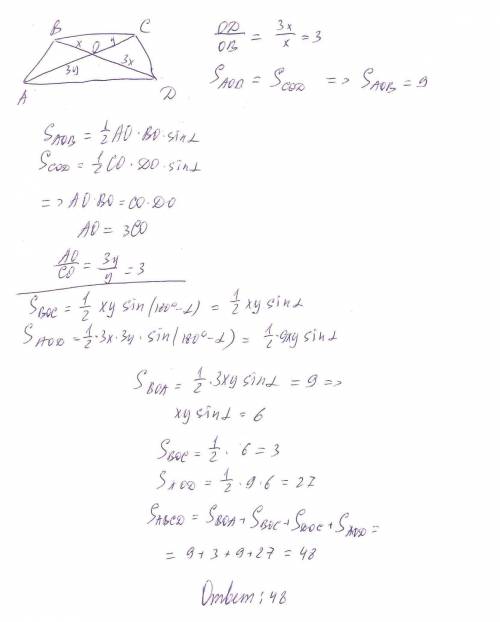 B C
x y
O
3y 3x
A D
OD/OB = 3x/x = 3
S_AOD = S_COD => S_AOB = 9
S_AOB = 1/2 AO · BO · sin α
S_COD = 1/2 CO · DO · sin α
=> AO · BO = CO · DO
AO = 3CO
AO/CO = 3y/y = 3
S_BOC = 1/2 xy sin(180° - α) = 1/2 xy sin α
S_AOD = 1/2 · 3x · 3y · sin(180° - α) = 1/2 · 9xy sin α
S_BOA = 1/2 · 3xy sin α = 9 =>
xy sin α = 6
S_BOC = 1/2 · 6 = 3
S_AOD = 1/2 · 9 · 6 = 27
S_ABCD = S_BOA + S_BOC + S_DOC + S_AOD =
= 9 + 3 + 9 + 27 = 48
Ответ: 48